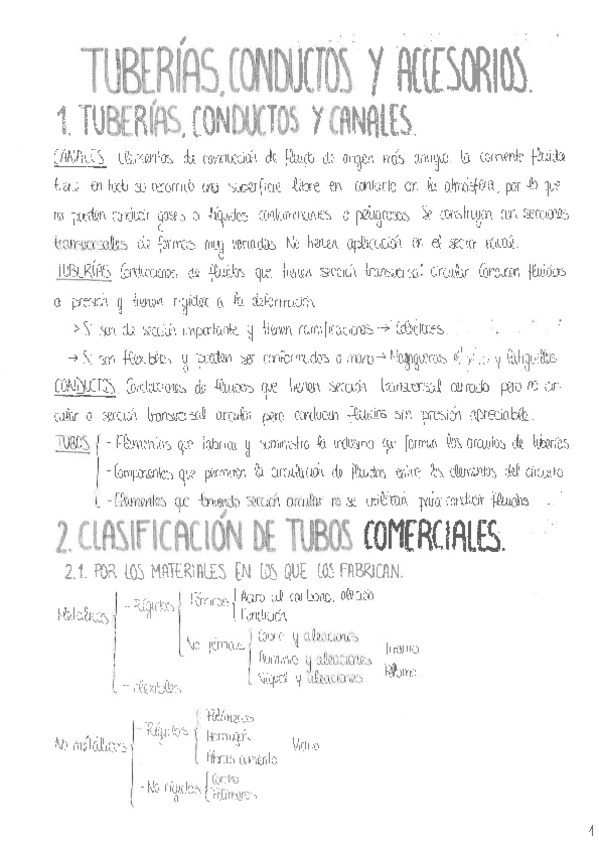 TUBERÍAS, CONDUCTOS Y ACCESORIOS.
1. TUBERÍAS, CONDUCTOS Y CANALES.
CANALES Elementos de conducción de fluido de origen más antiguo. La corriente fluida
en todo su recorrido una superficie libre en contacto con la atmósfera, por lo que
no pueden conducir gases o líquidos contaminantes o peligrosos. Se construyen con secciones
transversales de formas muy variadas. No tienen aplicación en el sector naval.
TUBERÍAS Conducciones de fluidos que tienen sección transversal circular. Conducen fluidos
a presión y tienen rigidez a la deformación.
> Si son de sección importante y tienen ramificaciones → Colectores.
→ Si son flexibles y pueden ser conformados a mano → Mangueras y latiguillos
CONDUCTOS. Conducciones de fluidos que tienen sección transversal cerrada pero no cir-
cular o sección transversal circular pero conducen fluidos sin presión apreciable.
TUBOS - Elementos que fabrica y suministra la industria que forman los circuitos de tuberías.
- Componentes que permiten la circulación de fluidos entre los elementos del circuito
- Elementos que teniendo sección circular no se utilizan para conducir fluidos
2. CLASIFICACIÓN DE TUBOS COMERCIALES.
2.1. POR LOS MATERIALES EN LOS QUE LOS FABRICAN.
Metálicos - Rígidos Férricos Acero al carbono, aleado
Fundición
No férricos Cobre y aleaciones
Aluminio y aleaciones Titanio
Níquel y aleaciones Plomo
- Flexibles
No metálicos - Rígidos Polímeros
Hormigón Vidrio
Fibras cemento
- No rígidos Caucho
Polímeros
1